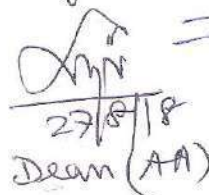 27/8/18
Dean (AA)